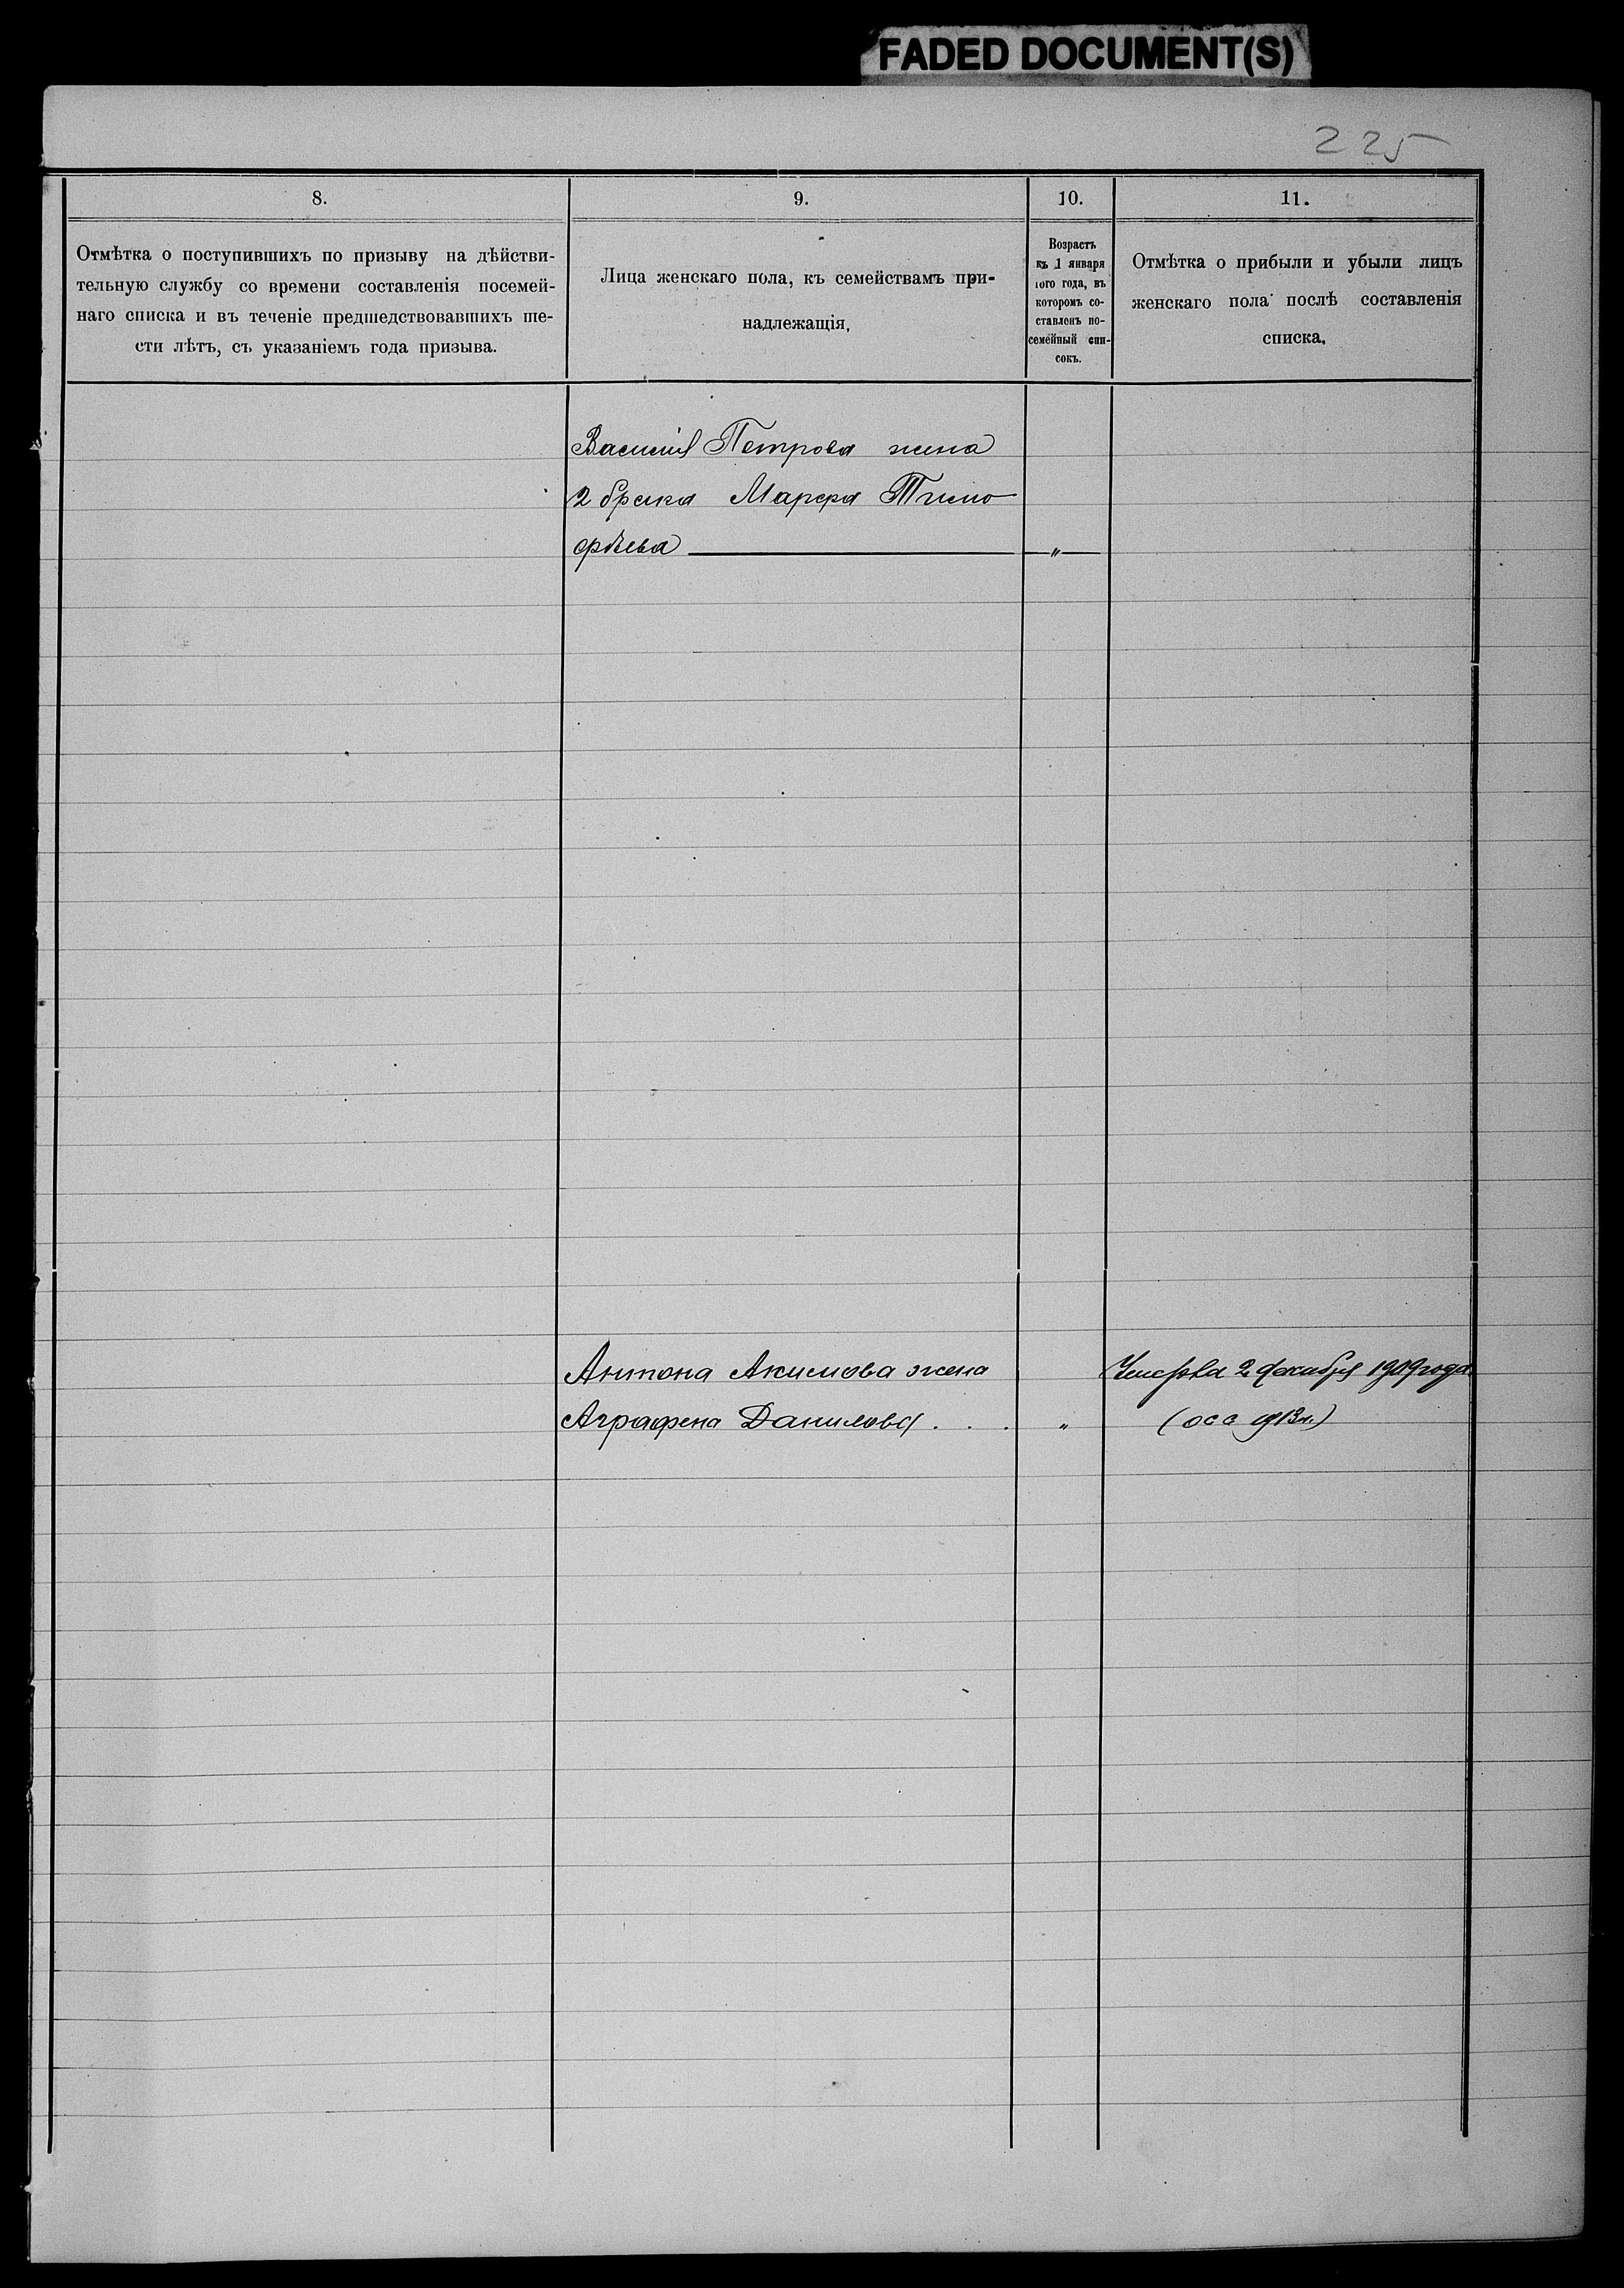 FADED DOCUMENT(S)
225
8.
9.
10.
11.
Отмѣтка о поступившихъ по призыву на дѣйстви-
тельную службу со времени составленія посемей-
наго списка и въ теченіе предшедствовавшихъ ше-
сти лѣтъ, съ указаніемъ года призыва.
Лица женскаго пола, къ семействамъ при-
надлежащія,
Возрастъ
къ 1 января
того года, въ
которомъ со-
ставленъ по-
семейный спи-
сокъ.
Отмѣтка о прибыли и убыли лицъ
женскаго пола послѣ составленія
списка.
Василія Петрова жена
2 брака Марфа Тимо
фѣева "
Антона Акимова жена
Умерла 2 декабря 1909 года
Аграфена Данилова . . . "